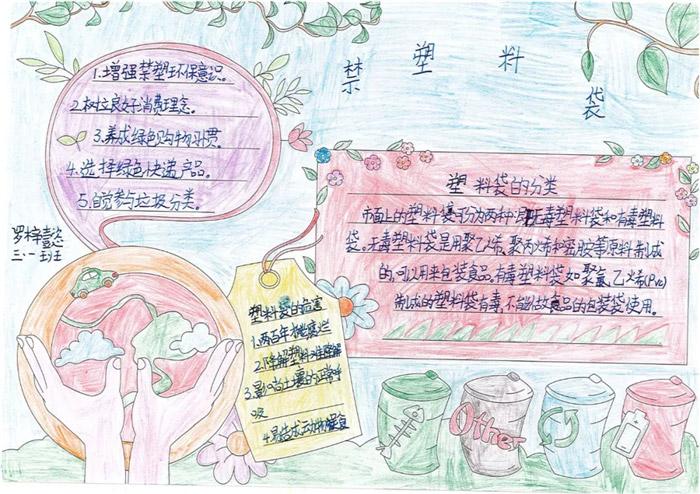 禁塑料袋
1.增强禁塑环保意识。
2.树立良好消费理念。
3.养成绿色购物习惯。
4.选择绿色快递产品。
5.自觉参与垃圾分类。
三·一班
塑料袋的分类
市面上的塑料袋可分为两种:无毒塑料袋和有毒塑料
袋。无毒塑料袋是用聚乙烯、聚丙烯和密胺等原料制成
的,可以用来包装食品。有毒塑料袋如聚氯乙烯(PVC)
制成的塑料袋有毒,不能做食品的包装袋使用。
塑料袋的危害
1.两百年才能腐烂
2.降解塑料难降解
3.影响土壤的正常呼
吸
4.易造成动物误食
Other